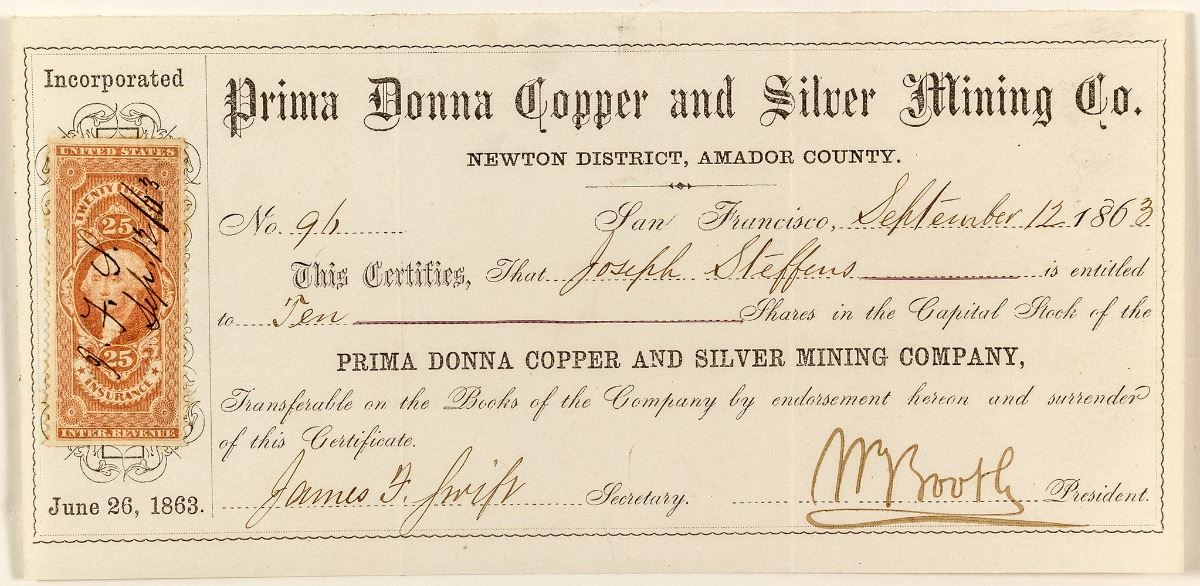 Incorporated
UNITED STATES
25
25
INSURANCE
INTER. REVENUE
J. F. S.
Sep 12/63
June 26, 1863.
Prima Donna Copper and Silver Mining Co.
NEWTON DISTRICT, AMADOR COUNTY.
No. 96 San Francisco, September 12 1863
This Certifies, That Joseph Steffens is entitled
to Ten Shares in the Capital Stock of the
PRIMA DONNA COPPER AND SILVER MINING COMPANY,
Transferable on the Books of the Company by endorsement hereon and surrender
of this Certificate.
James F. Swift Secretary. W Booth President.